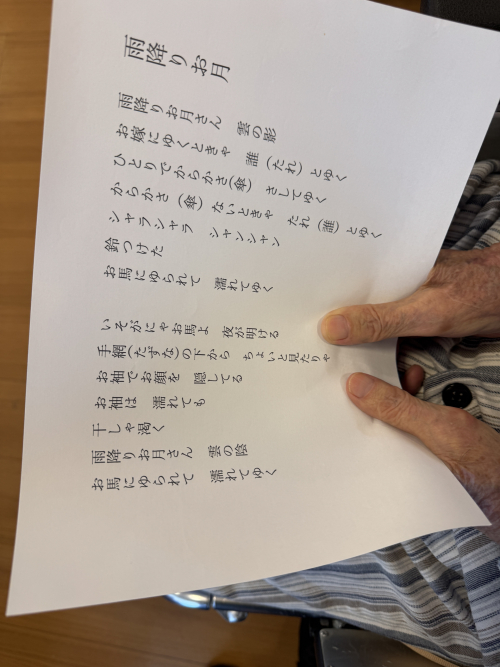 雨降りお月
雨降りお月さん　雲の影
お嫁にゆくときゃ　誰（たれ）とゆく
ひとりでからかさ（傘）　さしてゆく
からかさ（傘）ないときゃ　たれ（誰）とゆく
シャラシャラ　シャンシャン
鈴つけた
お馬にゆられて　濡れてゆく
いそがにゃお馬よ　夜が明ける
手綱（たずな）の下から　ちょいと見たりゃ
お袖でお顔を　隠してる
お袖は　濡れても
干しゃ渇く
雨降りお月さん　雲の陰
お馬にゆられて　濡れてゆく